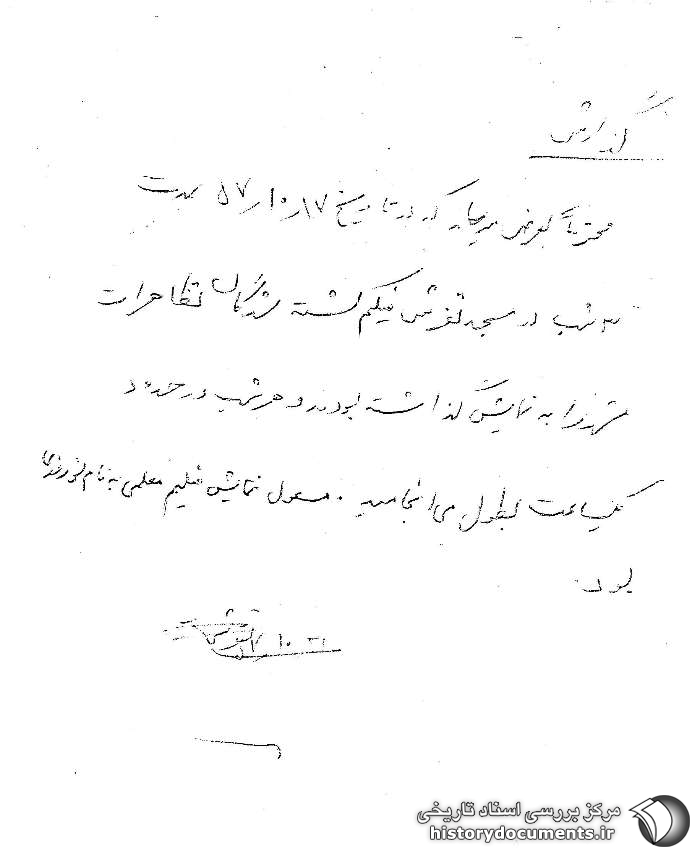 گزارش
محترماً بعرض میرساند که در تاریخ ۵۷/۱۰/۱۷ بمدت
۳ شب در مسجد تفرش فیلم کشته شدگان تظاهرات
مشهد را به نمایش گذاشته بودند و هر شب در حدود
یکساعت بطول می انجامید. مسئول نمایش فیلم معلمی به نام
بود.
مرکز بررسی اسناد تاریخی
historydocuments.ir